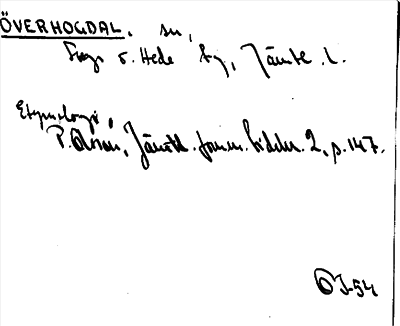 ÖVERHOGDAL. sn,
Svegs o. Hede tg, Jämtl. l.
Etymologi,
P. Olsson, Jämtl. fornm. tidskr. 2, p. 147.
OJ-54